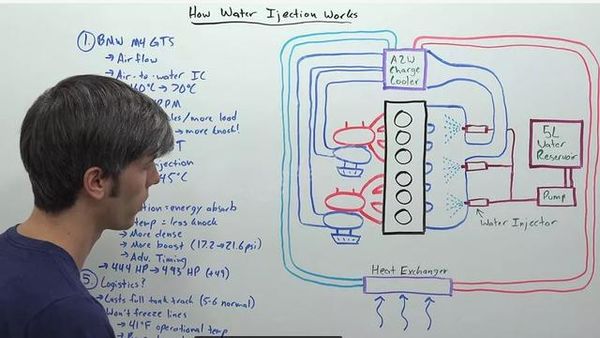 How Water Injection Works
1. BMW M4 GTS
→ Airflow
→ Air-to-water IC
60°C → 70°C
RPM
/more load
more knock!
T
jection
45°C
= energy absorb
temp = less knock
→ More dense
→ More boost (17.2→21.6psi)
→ Adv. Timing
→ 444 HP → 493 HP (+49)
5. Logistics?
→ Lasts full tank track (5-6 normal)
Won't freeze lines
→ 41°F operational temp
A2W
Charge
Cooler
5L
Water
Reservoir
Pump
Water Injector
Heat Exchanger